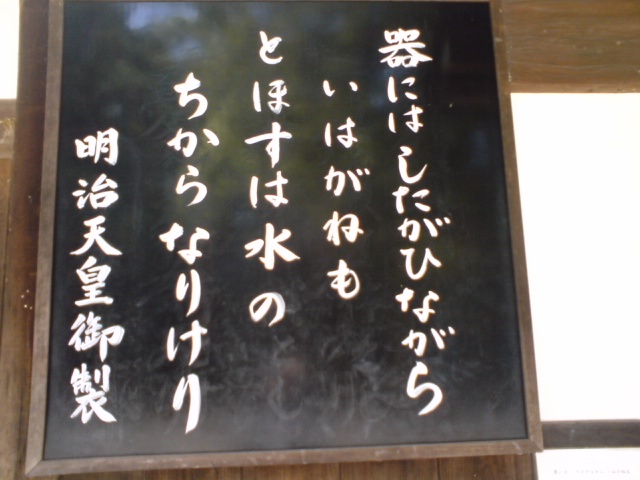 器にはしたがひながら
いはがねも
とほすは水の
ちからなりけり
明治天皇御製